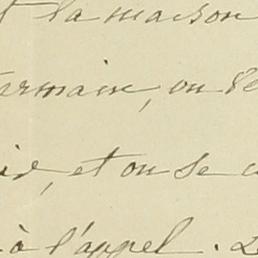 la maison
ermain, ou
et on se
à l'appel.